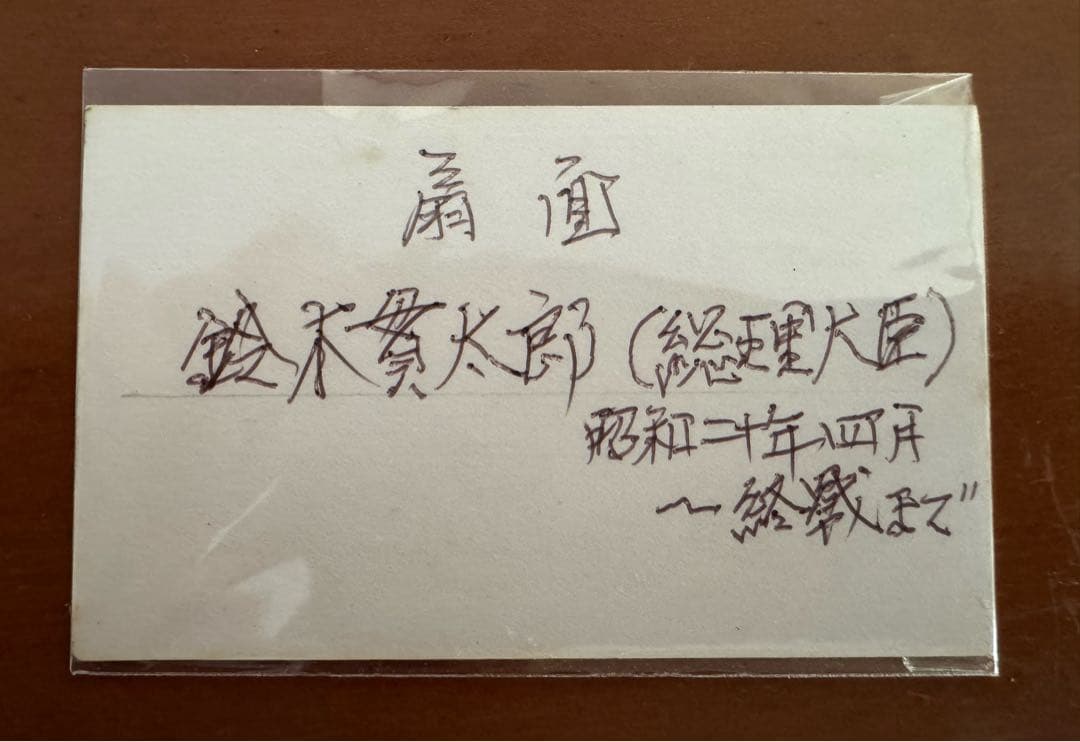 扇面
鈴木貫太郎(総理大臣)
昭和二十年四月
〜終戦まで